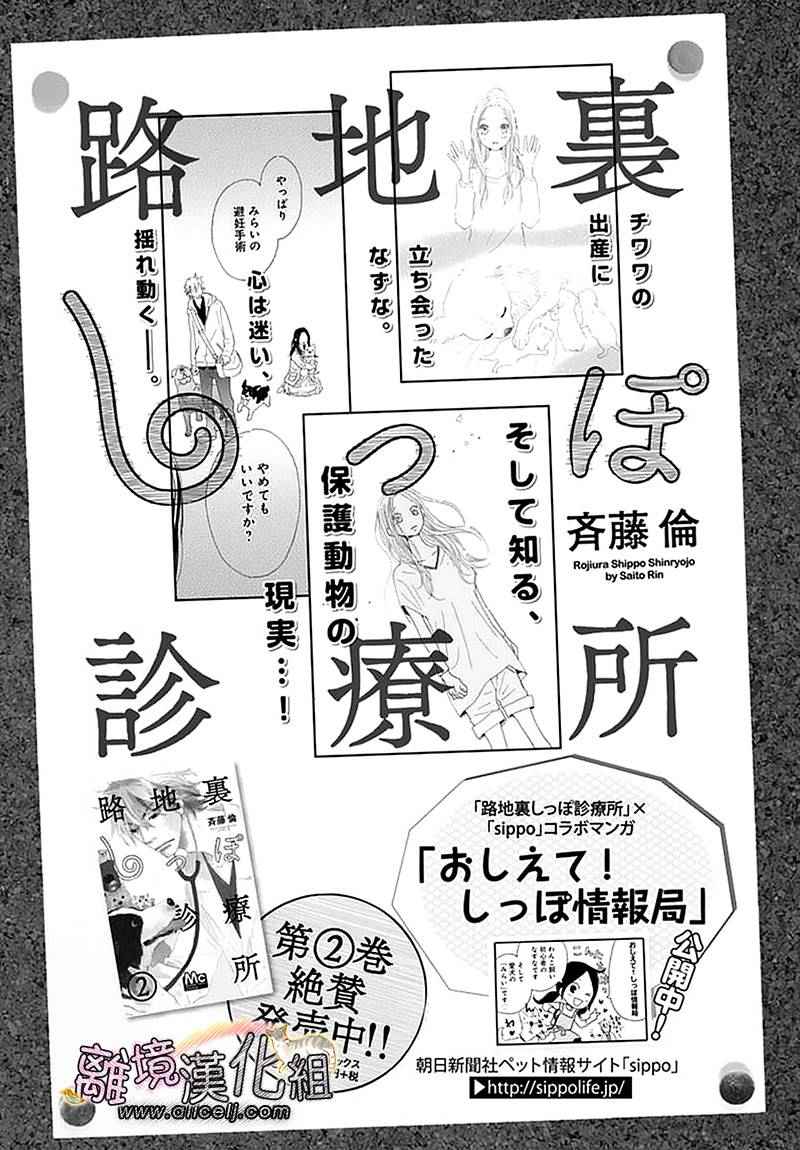 路地裏
しっぽ
診療所
斉藤 倫
Rojiura Shippo Shinryojo
by Saito Rin
チワワの
出産に
立ち会った
なずな。
やっぱり
みらいの
避妊手術
心は迷い、
揺れ動く──。
やめても
いいですか?
そして知る、
保護動物の
現実…!
路地裏
斉藤 倫
しっぽ
診療所
②
Mc
第②巻
絶賛
発売中!!
「路地裏しっぽ診療所」×
「sippo」コラボマンガ
「おしえて!
しっぽ情報局」
公開中!
おしえて!しっぽ情報局
わんこ飼い
初心者の
なずなです
そして
愛犬の
「みらい」です
朝日新聞社ペット情報サイト「sippo」
▶http://sippolife.jp/
離境漢化組
www.alicelj.com